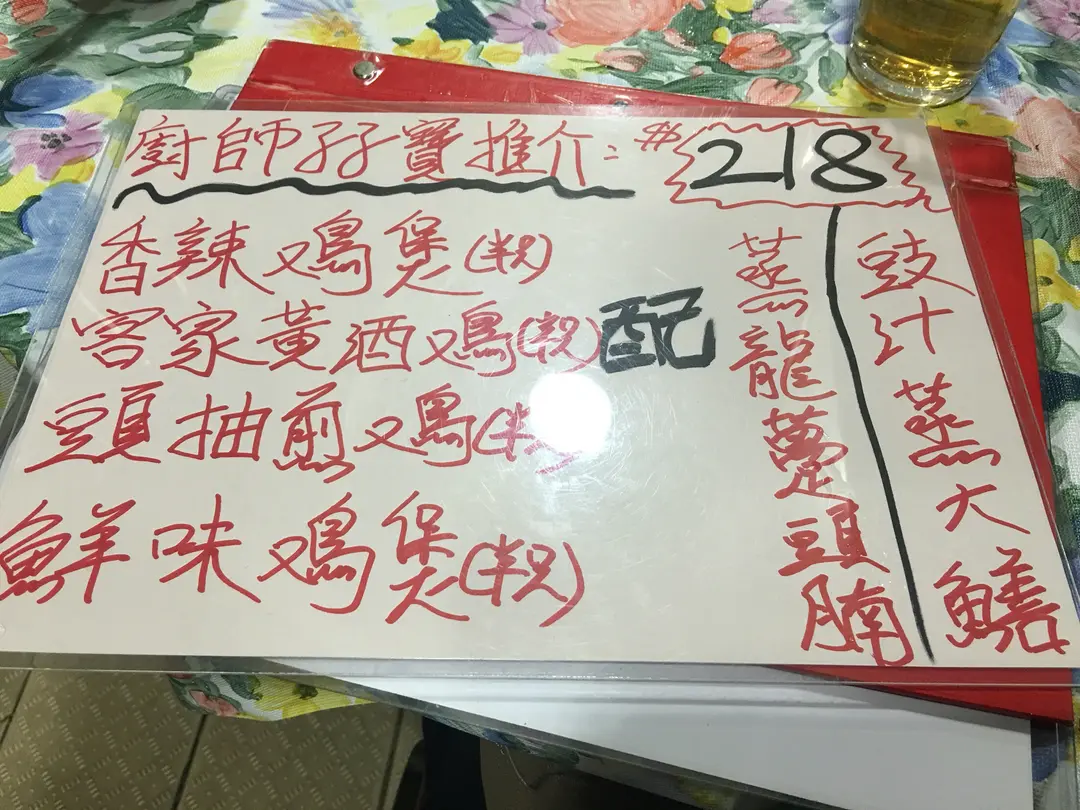 廚師孖寶推介: $218
香辣鸡煲(半只)
客家黃酒鸡(半只)
頭抽煎鸡(半只)
鮮味鸡煲(半只)
配
蒸龍躉頭腩
豉汁蒸大鱔